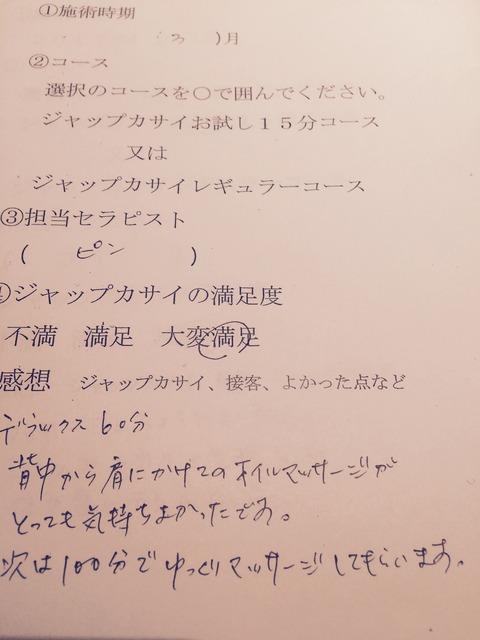 ①施術時期
( 3 )月
②コース
選択のコースを○で囲んでください。
ジャップカサイお試し15分コース
又は
ジャップカサイレギュラーコース
③担当セラピスト
( ピン )
④ジャップカサイの満足度
不満 満足 大変満足
感想 ジャップカサイ、接客、よかった点など
デラックス60分
背中から肩にかけてのオイルマッサージが
とっても気持ちよかったです。
次は100分でゆっくりマッサージしてもらいます。